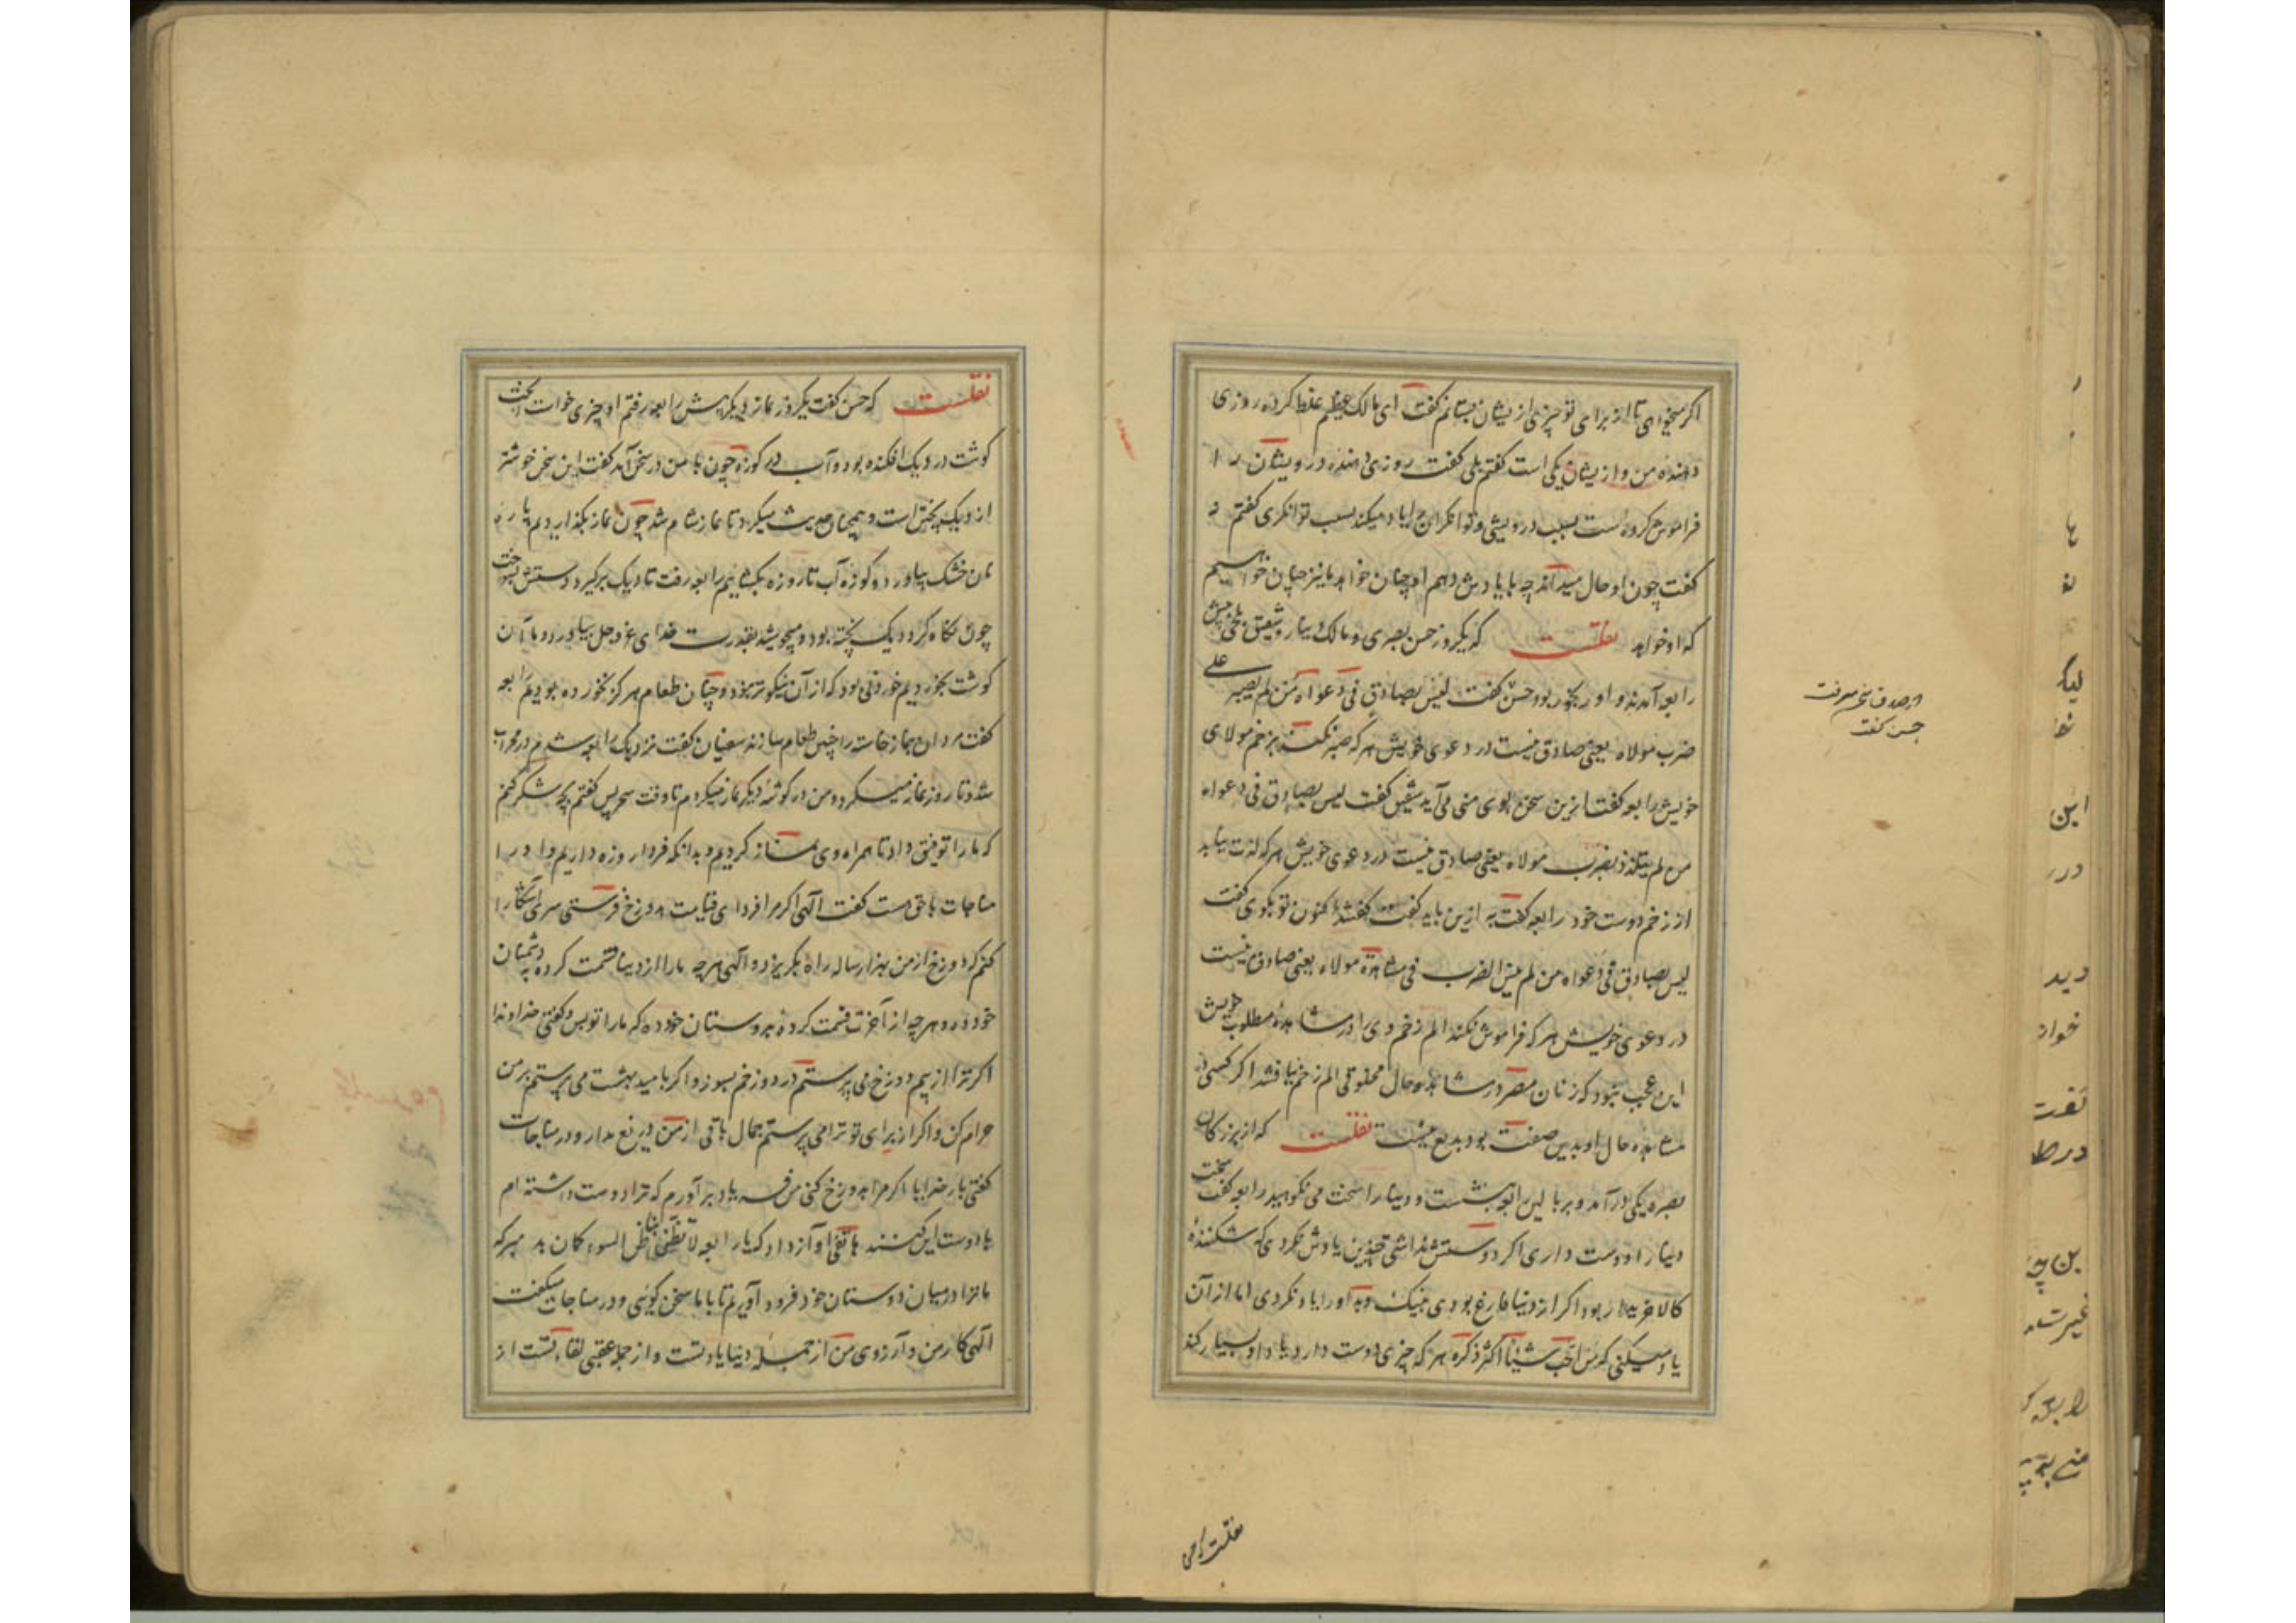 اکر میخواهی تا از برای تو چیزی از یشان بستانم کفت ای مالک عظیم غلط کرده روزی
دهنده من و از یشان یکی است کفتم بلی کفت روزی دهنده درویشان را
فراموش کرده است بسبب درویشی و توانکران را یاد میکند بسبب توانکری کفتم نه
کفت چون او حال میداند چه با یادش دهم او چنان خواهد ما نیز چنان خواهیم
که او خواهد نقلست که یکروز حسن بصری و مالک دینار و شقیق بلخی پیش
رابعه آمدند و او رنجور بود حسن کفت لیس بصادق فی دعواه من لم یصبر علی
ضرب مولاه یعنی صادق نیست در دعوی خویش هر که صبر نکند بزخم مولای
خویش رابعه کفت ازین سخن بوی منی می آید شقیق کفت لیس بصادق فی دعواه
من لم یتلذذ بضرب مولاه یعنی صادق نیست در دعوی خویش هر که لذت نیابد
از زخم دوست خود رابعه کفت به ازین باید کفت کفتند اکنون تو بکوی کفت
لیس بصادق فی دعواه من لم ینس الضرب فی مشاهدة مولاه یعنی صادق نیست
در دعوی خویش هر که فراموش نکند الم زخم وی را در مشاهدۀ مطلوب خویش
این عجب نبود که زنان مصر در مشاهده جمال مخلوقی الم زخم نیافتند اکر کسی در
مشاهده حال او بدین صفت بود بدیع نیست نقلست که از بزرکان
بصره یکی در آمد و بر بالین رابعه بنشست و دنیا را سخت می نکوهید رابعه کفت سخت
دنیا را دوست داری اکر دوستش نداشتی چندین یادش نکردی که شکننده
کالا خریدار بود اکر از دنیا فارغ بودی بنیک و بد او را یاد نکردی اما از آن
یاد میکنی که من احب شیئا اکثر ذکره هر که چیزی دوست دارد یاد او بسیار کند
در صدق سخن میرفت
حسن کفت
نقلست که حسن
نقلست که حسن کفت یکروز نماز دیکر پیش رابعه رفتم او چیزی خواست پخت
کوشت در دیک افکنده بود و آب در کوزه چون با من در سخن آمد کفت این سخن خوشتر
از دیک پختن است و همچنان حدیث میکرد تا نماز شام شد چون نماز بکذاردیم پاره
نان خشک بیاورد و کوزه آب تا روزه بکشاییم رابعه رفت تا دیک برکیرد دستش بسوخت
چون نکاه کرد دیک پخته بود و میجوشید بقدرت خدای عز و جل بیاورد و با آن
کوشت بخوردیم خوردنی بود که از آن نیکوتر نبود و چنان طعام هرکز نخورده بودیم رابعه
کفت مردان بماز خاسته را چنین طعام سازند سفیان کفت نزدیک رابعه شدم در محراب
شد و تا روز نماز میکرد و من در کوشه دیکر نماز میکردم تا وقت سحر پس کفتم بچه شکر کنم
که ما را توفیق داد تا همراه وی نماز کردیم و بدانکه فردا روزه داریم و او را
مناجات با حق هست کفت الهی اکر مرا فردای قیامت بدوزخ فرستی سری آشکارا
کنم که دوزخ از من بهزار ساله راه بکریزد و الهی هر چه ما را از دنیا قسمت کرده بدشمنان
خود ده و هر چه از آخرت قسمت کرده بدوستان خود ده که ما را تو بس و کفتی خداوندا
اکر ترا از بیم دوزخ می پرستم در دوزخم بسوز و اکر بامید بهشت می پرستم بر من
حرام کن و اکر از برای تو ترا می پرستم جمال باقی از من دریغ مدار و در مناجات
کفتی بار خدایا اکر مرا بدوزخ کنی من فریاد برآورم که ترا دوست داشته ام
با دوست این کنند هاتفی آواز داد که یا رابعه لا تظنی بنا ظن السوء کمان بد مبر که
ما ترا در میان دوستان خود فرود آوریم تا با ما سخن کوئی و در مناجات میکفت
الهی کار من و آرزوی من از جمله دنیا یاد تست و از جمله عقبی لقاء تست از